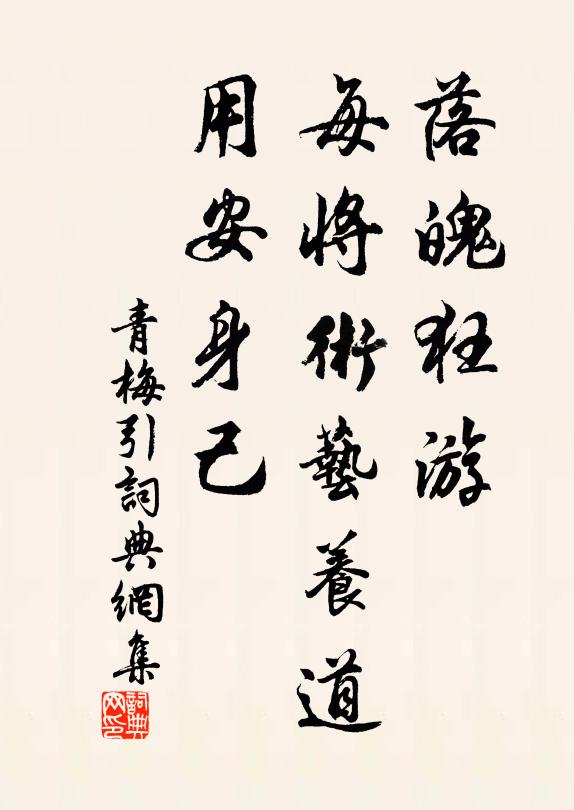 落魄狂游
每將術藝養道
用安身己
青梅引詞典網集
詞典
网印